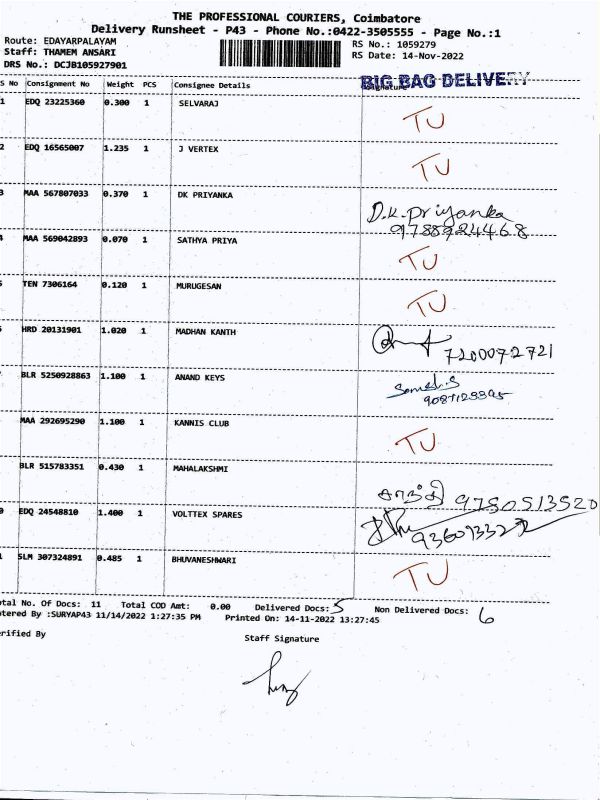 THE PROFESSIONAL COURIERS, Coimbatore
Delivery Runsheet - P43 - Phone No.:0422-3505555 - Page No.:1
Route: EDAYARPALAYAM
RS No.: 1059279
Staff: THAMEM ANSARI
RS Date: 14-Nov-2022
DRS No.: DCJB105927901
BIG BAG DELIVERY
S No Consignment No Weight PCS Consignee Details Signature
1 EDQ 23225360 0.300 1 SELVARAJ TU
2 EDQ 16565007 1.235 1 J VERTEX TU
3 MAA 567807033 0.370 1 DK PRIYANKA D.K.Priyanka
9788924468
4 MAA 569042893 0.070 1 SATHYA PRIYA TU
5 TEN 7306164 0.120 1 MURUGESAN TU
HRD 20131901 1.020 1 MADHAN KANTH
7200072721
BLR 5250928863 1.100 1 ANAND KEYS
MAA 292695290 1.100 1 KANNIS CLUB TU
BLR 515783351 0.430 1 MAHALAKSHMI சாந்தி 9750513520
0 EDQ 24548810 1.400 1 VOLTTEX SPARES
1 SLM 307324891 0.485 1 BHUVANESHWARI TU
otal No. Of Docs: 11 Total COD Amt: 0.00 Delivered Docs: 5 Non Delivered Docs: 6
tered By :SURYAP43 11/14/2022 1:27:35 PM Printed On: 14-11-2022 13:27:45
erified By
Staff Signature